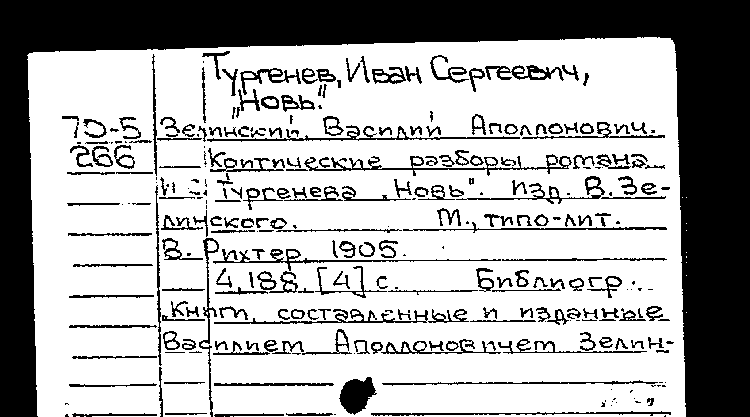 Тургенев, Иван Сергеевич,
"Новь."
70-5 Зелинский, Василий Аполлонович.
266 Критические разборы романа
И. С. Тургенева „Новь". Изд. В. Зе-
линского. М., типо-лит.
В. Рихтер, 1905.
4, 188, [4] с. Библиогр.:
„Книги, составленные и изданные
Василием Аполлоновичем Зелин-